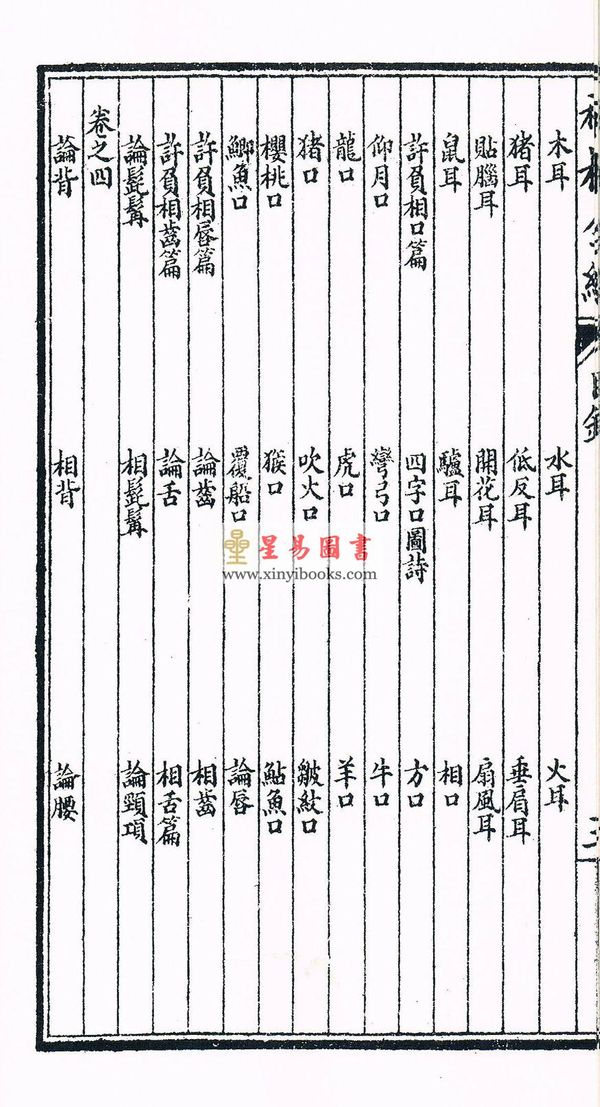 木耳 水耳 火耳
猪耳 低反耳 垂肩耳
貼腦耳 開花耳 扇風耳
鼠耳 驢耳 相口
許負相口篇 四字口圖詩 方口
仰月口 彎弓口 牛口
龍口 虎口 羊口
猪口 吹火口 皺紋口
櫻桃口 猴口 鮎魚口
鯽魚口 覆船口 論唇
許負相唇篇 論齒 相齒
許負相齒篇 論舌 相舌篇
論髭髯 相髭髯 論頸項
卷之四
論背 相背 論腰
星易圖書
www.xinyibooks.com